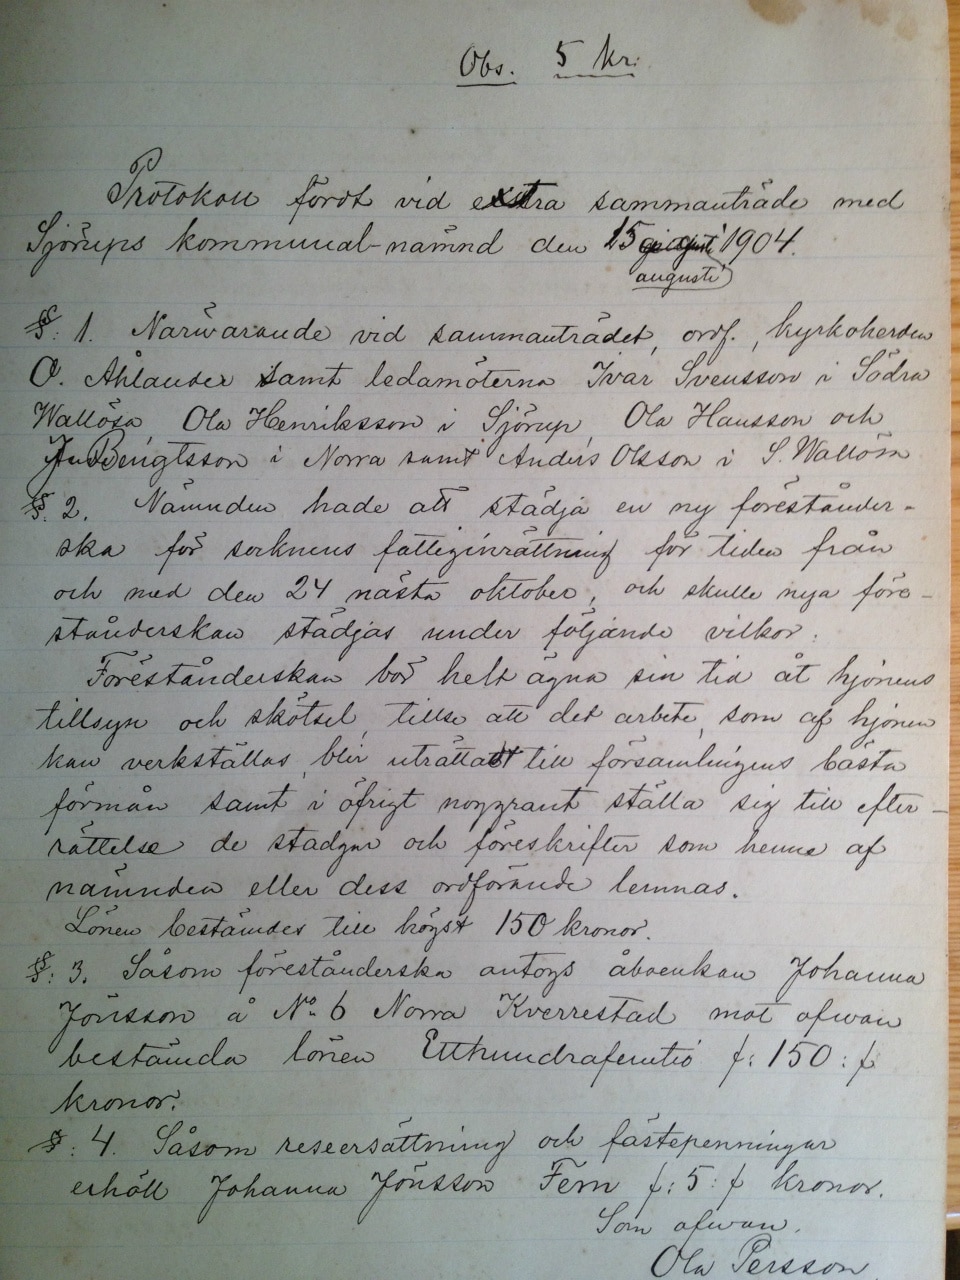 Obs. 5 kr.
Protokoll fördt vid extra sammanträde med
Sjörups kommunal-nämnd den 15 1904.
augusti
§: 1. Närwarande vid sammanträdet, ordf., kyrkoherden
O. Åhlander samt ledamöterna Ivar Svensson i Södra
Wallösa Ola Henriksson i Sjörup, Ola Hansson och
Bengtsson i Norra samt Anders Olsson i S. Wallösa
§: 2. Nämnden hade att städja en ny förestånder-
ska för socknens fattiginrättning för tiden från
och med den 24 nästa oktober, och skulle nya före-
stånderskan städjas under följande vilkor:
Förestånderskan bör helt ägna sin tid åt hjonens
tillsyn och skötsel, tillse att det arbete, som af hjonen
kan verkställas, blir uträttadt till församlingens bästa
förmån samt i öfrigt noggrant ställa sig till efter-
rättelse de stadgar och föreskrifter som henne af
nämnden eller dess ordförande lemnas.
Lönen bestämdes till högst 150 kronor.
§: 3. Såsom förestånderska antogs åboenkan Johanna
Jönsson å No 6 Norra Kverrestad mot ofwan
bestämda lönen Etthundrafemtio f: 150 : f
kronor.
§: 4. Såsom reseersättning och fästepenningar
erhöll Johanna Jönsson Fem f: 5 : f kronor.
Som ofwan.
Ola Persson